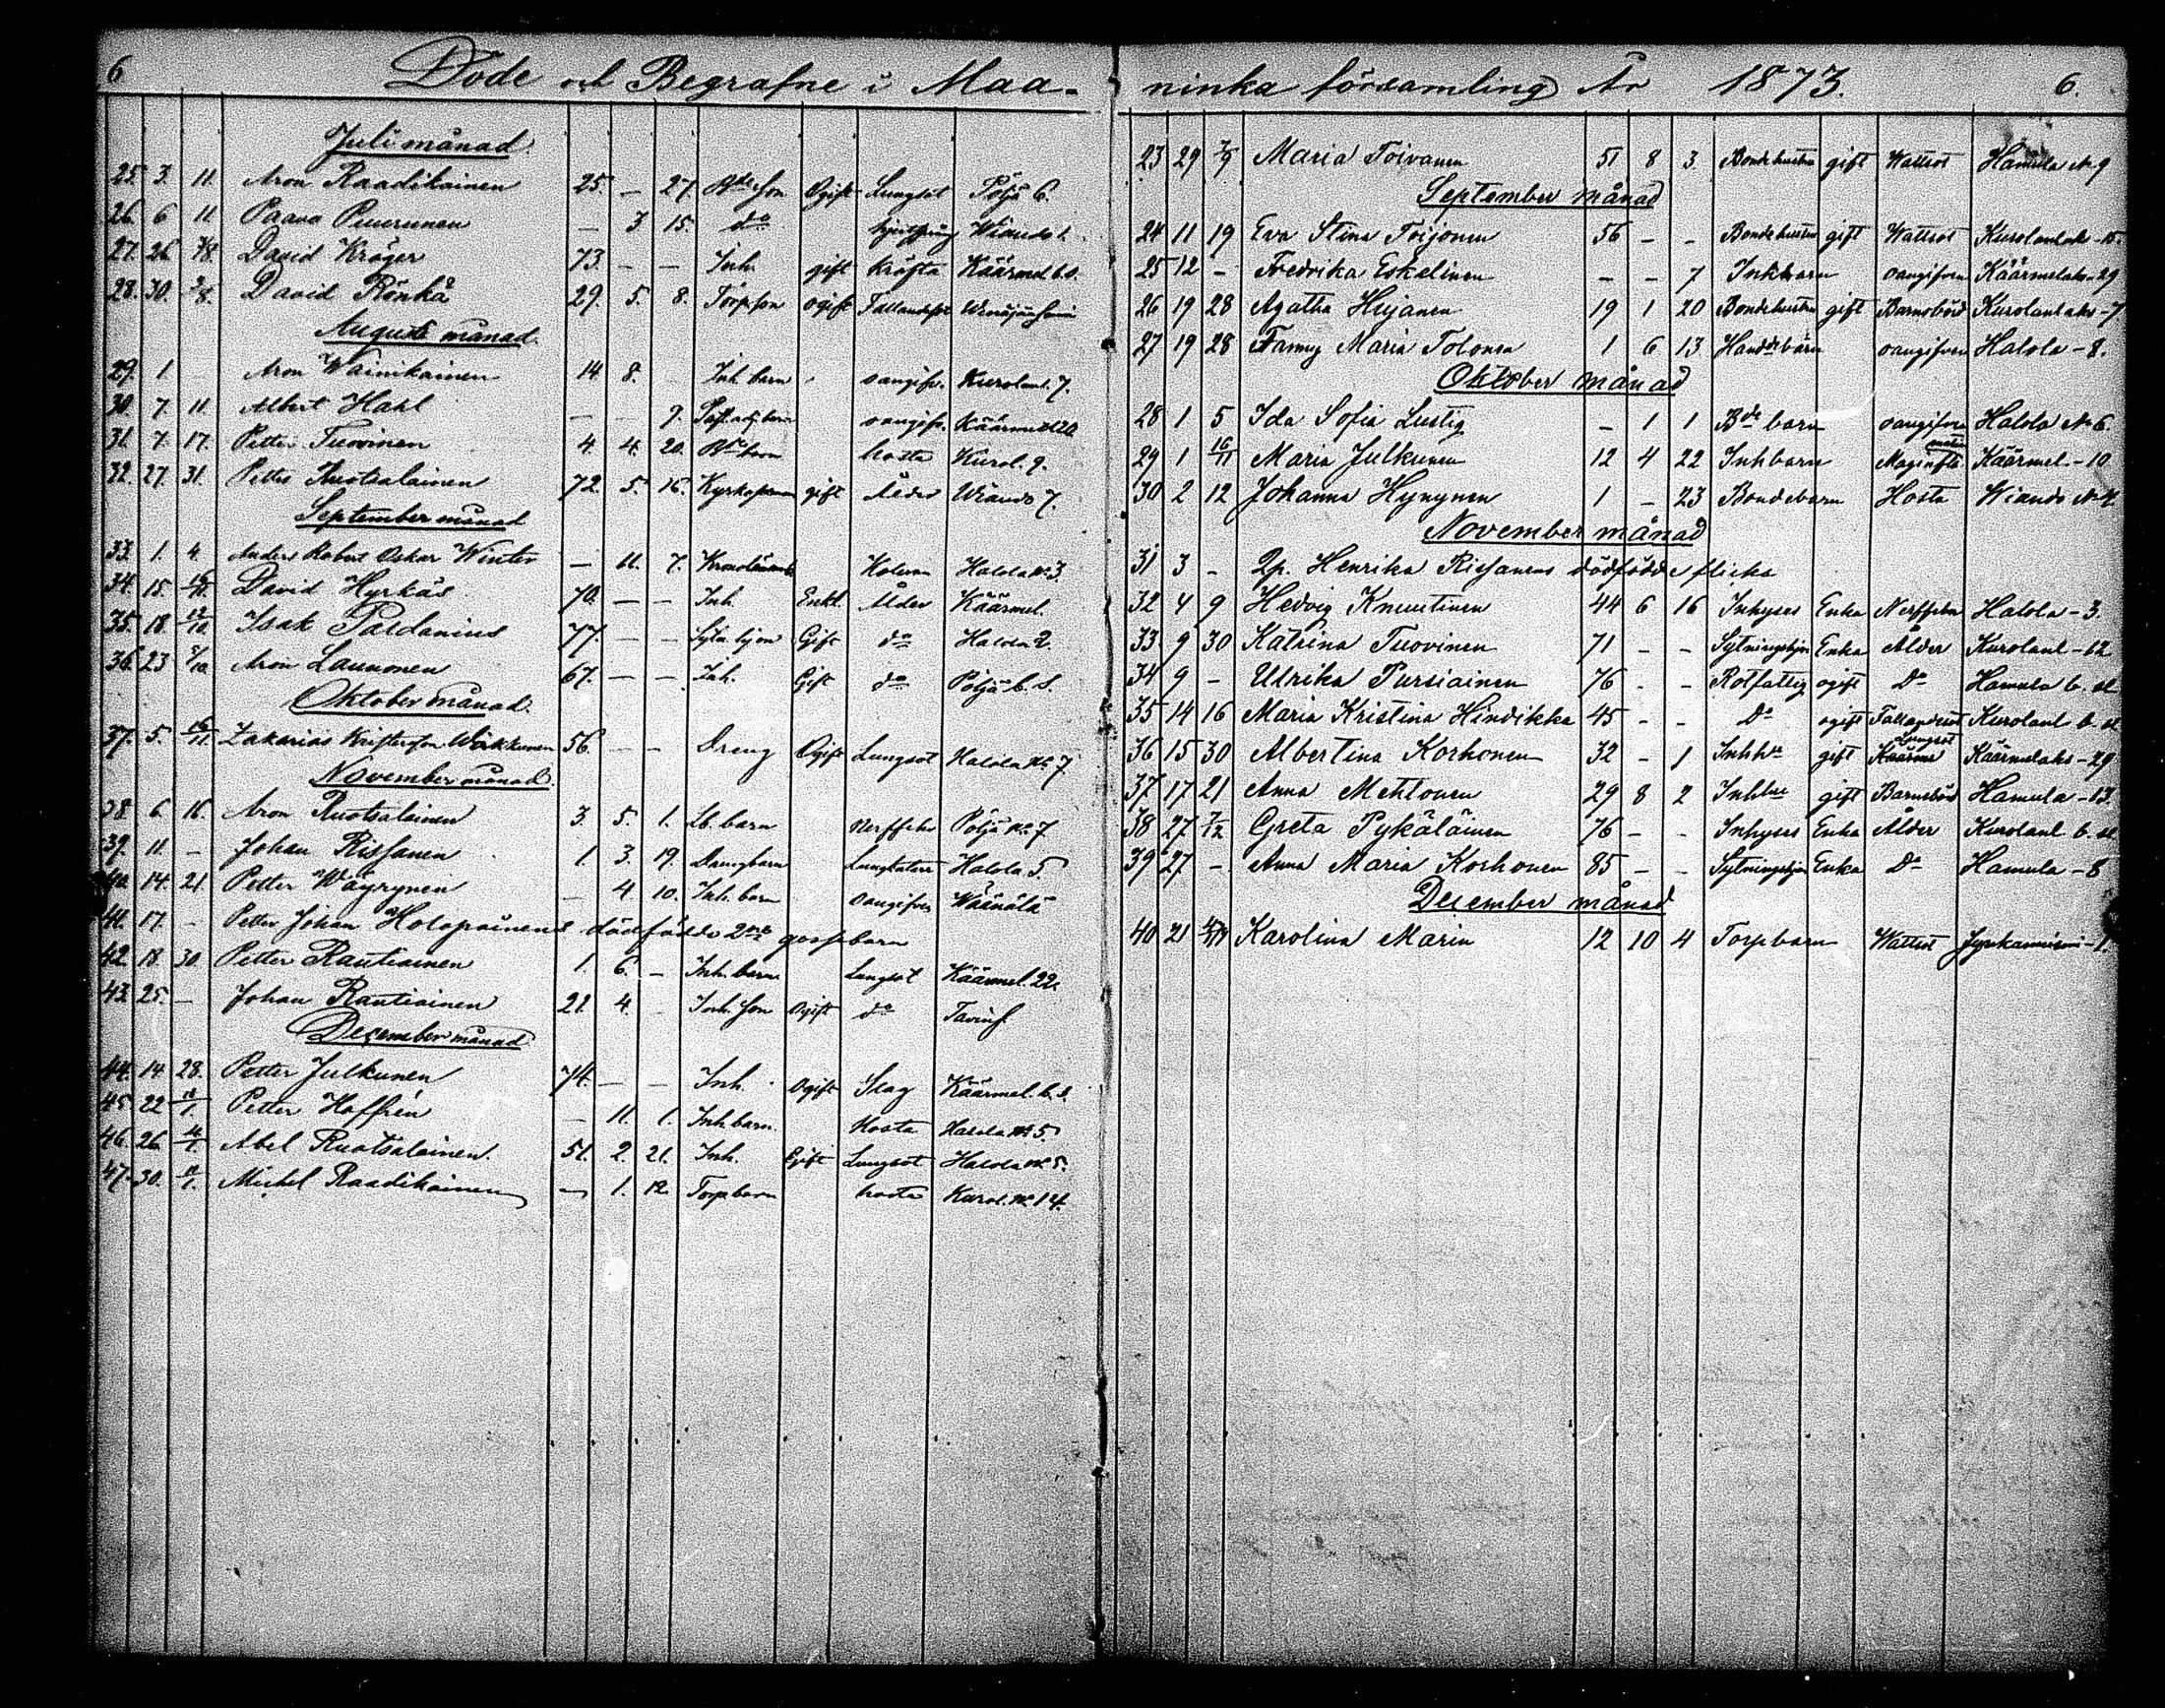 6 Döde och Begrafne i Maa-
Juli månad.
25. 3. 11. Aron Raadikainen 25. — 27. Bde son Ogift Lungsot Pöljä 6.
26. 6 11 Paavo Puurunen — 3 15. do Wiando 1.
27. 26 7/8 David Kröger 73. — — Inh. gift Kräfta Käärmel. b.s.
28. 30. 3/8. David Rönkä 29. 5. 8. Torpson ogift Fallandsot
Augusti månad.
29. 1. Aron Wainikainen 14 8. Inh. barn oangifv. Kurolanl. 7.
30. 7. 11. Albert Hahl — — 9. oangifv. Käärmel 20.
31. 7. 17. Petter Tuovinen 4. 4. 20. Bde barn hosta Kurol. 9.
32. 27. 31. Petter Ruotsalainen 72. 5. 16. gift Ålder Wiando 7.
September månad
33. 1. 4 Anders Robert Oskar Winter — 11. 7. Halola No 3.
34. 15. David Hyrkäs 70. — — Inh. Enkl. Ålder Käärmel.
35. 18. 12/10 Isak Paldanius 77. — — Gift do Halola 2.
36. 23 Aron Launonen 67. — — Inh. Gift do Pöljä b. s.
Oktober månad.
37. 5. 16/11. Zakarias Kristersson Wäkkunen 56. — — Dreng Ogift Lungsot Halola No 7.
November månad.
38. 6. 16. Aron Ruotsalainen 3. 5. 1. Lb. barn Nerffeber Pöljä No 7
39. 11. — Johan Rissanen 1. 3. 19. Drengbarn Lungkatarr Halola 5.
40. 14. 21 Petter Wäyrynen — 4. 10. Inh. barn oangifven Wäänälä
41. 17. — Petter Johan Holopainens dödfödde 2ne gossebarn
42. 18. 30. Petter Rautiainen 1. 6. — Inh. barn Lungsot Käärmel. 22.
43. 25. — Johan Rautiainen 21. 4. Inh. son Ogift do Tavins.
December månad
44. 14. 28. Petter Julkunen 74. — — Inh. Ogift Slag Käärmel. b.s.
45. 22 Petter Hoffrén — 11. 1. Inh. barn. Hosta Halola No 5.
46. 26. Abel Ruotsalainen. 51. 2. 21. Inh. Gift Lungsot Halola No 5.
47. 30. Michel Raadikainen — 1. 12. Torpbarn hosta Kurol. No 14.
ninka församling År 1873. 6.
23 29 7/9 Maria Toivanen 51 8 3 Bondehustru gift Wattsot Hamula No 9
September månad
24 11 19 Eva Stina Toijonen 56 - - Bondehustru gift Wattsot Kurolanlaks - 15.
25 12 - Fredrika Eskelinen - - 7 Inhbarn oangifven Käärmelaks - 29
26 19 28 Agatha Hujanen 19 1 20 Bondehustru gift Barnsbörd Kurolanlaks - 7
27 19 28 Fanny Maria Tolonen 1 6 13 oangifven Halola - 8.
Oktober månad
28 1 5 Ida Sofia Lustig - 1 1 Bde barn oangifven Halola No 6.
29 1 16/11 Maria Julkunen 12 4 22 Inhbarn Käärmel. - 10
30 2 12 Johanna Hynynen 1 - 23 Bondebarn Hosta Wiando No
November månad
31 3 - Qp. Henrika Rissanens dödfödde flicka
32 4 9 Hedvig Knuutinen 44 6 16 Inhyses Enka Nerffeber Halola - 3.
33 9 30 Katrina Tuovinen 71 - - Sytningshjon Enka Ålder Kurolanl - 12
34 9 - Ulrika Pursiainen 76 - - Rotfattig ogift Do Hamula b. sl
35 14 16 Maria Kristina Hindikka 45 - - Do ogift Fallandsot Kurolanl b. sl
36 15 30 Albertina Korhonen 32 - 1 Inhhu gift Lungsot Käärmelaks - 29
37 17 21 Anna Mehtonen 29 8 2 Inhhu gift Barnsbörd Hamula - 13.
38 27 7/12 Greta Pykäläinen 76 - - Inhyses Enka Ålder Kurolanl b. sl
39 27 - Anna Maria Korhonen 85 - - Sytningshjon Enka Do Hamula - 8
December månad
40 21 Karolina Maria 12 10 4 Torpbarn Wattsot